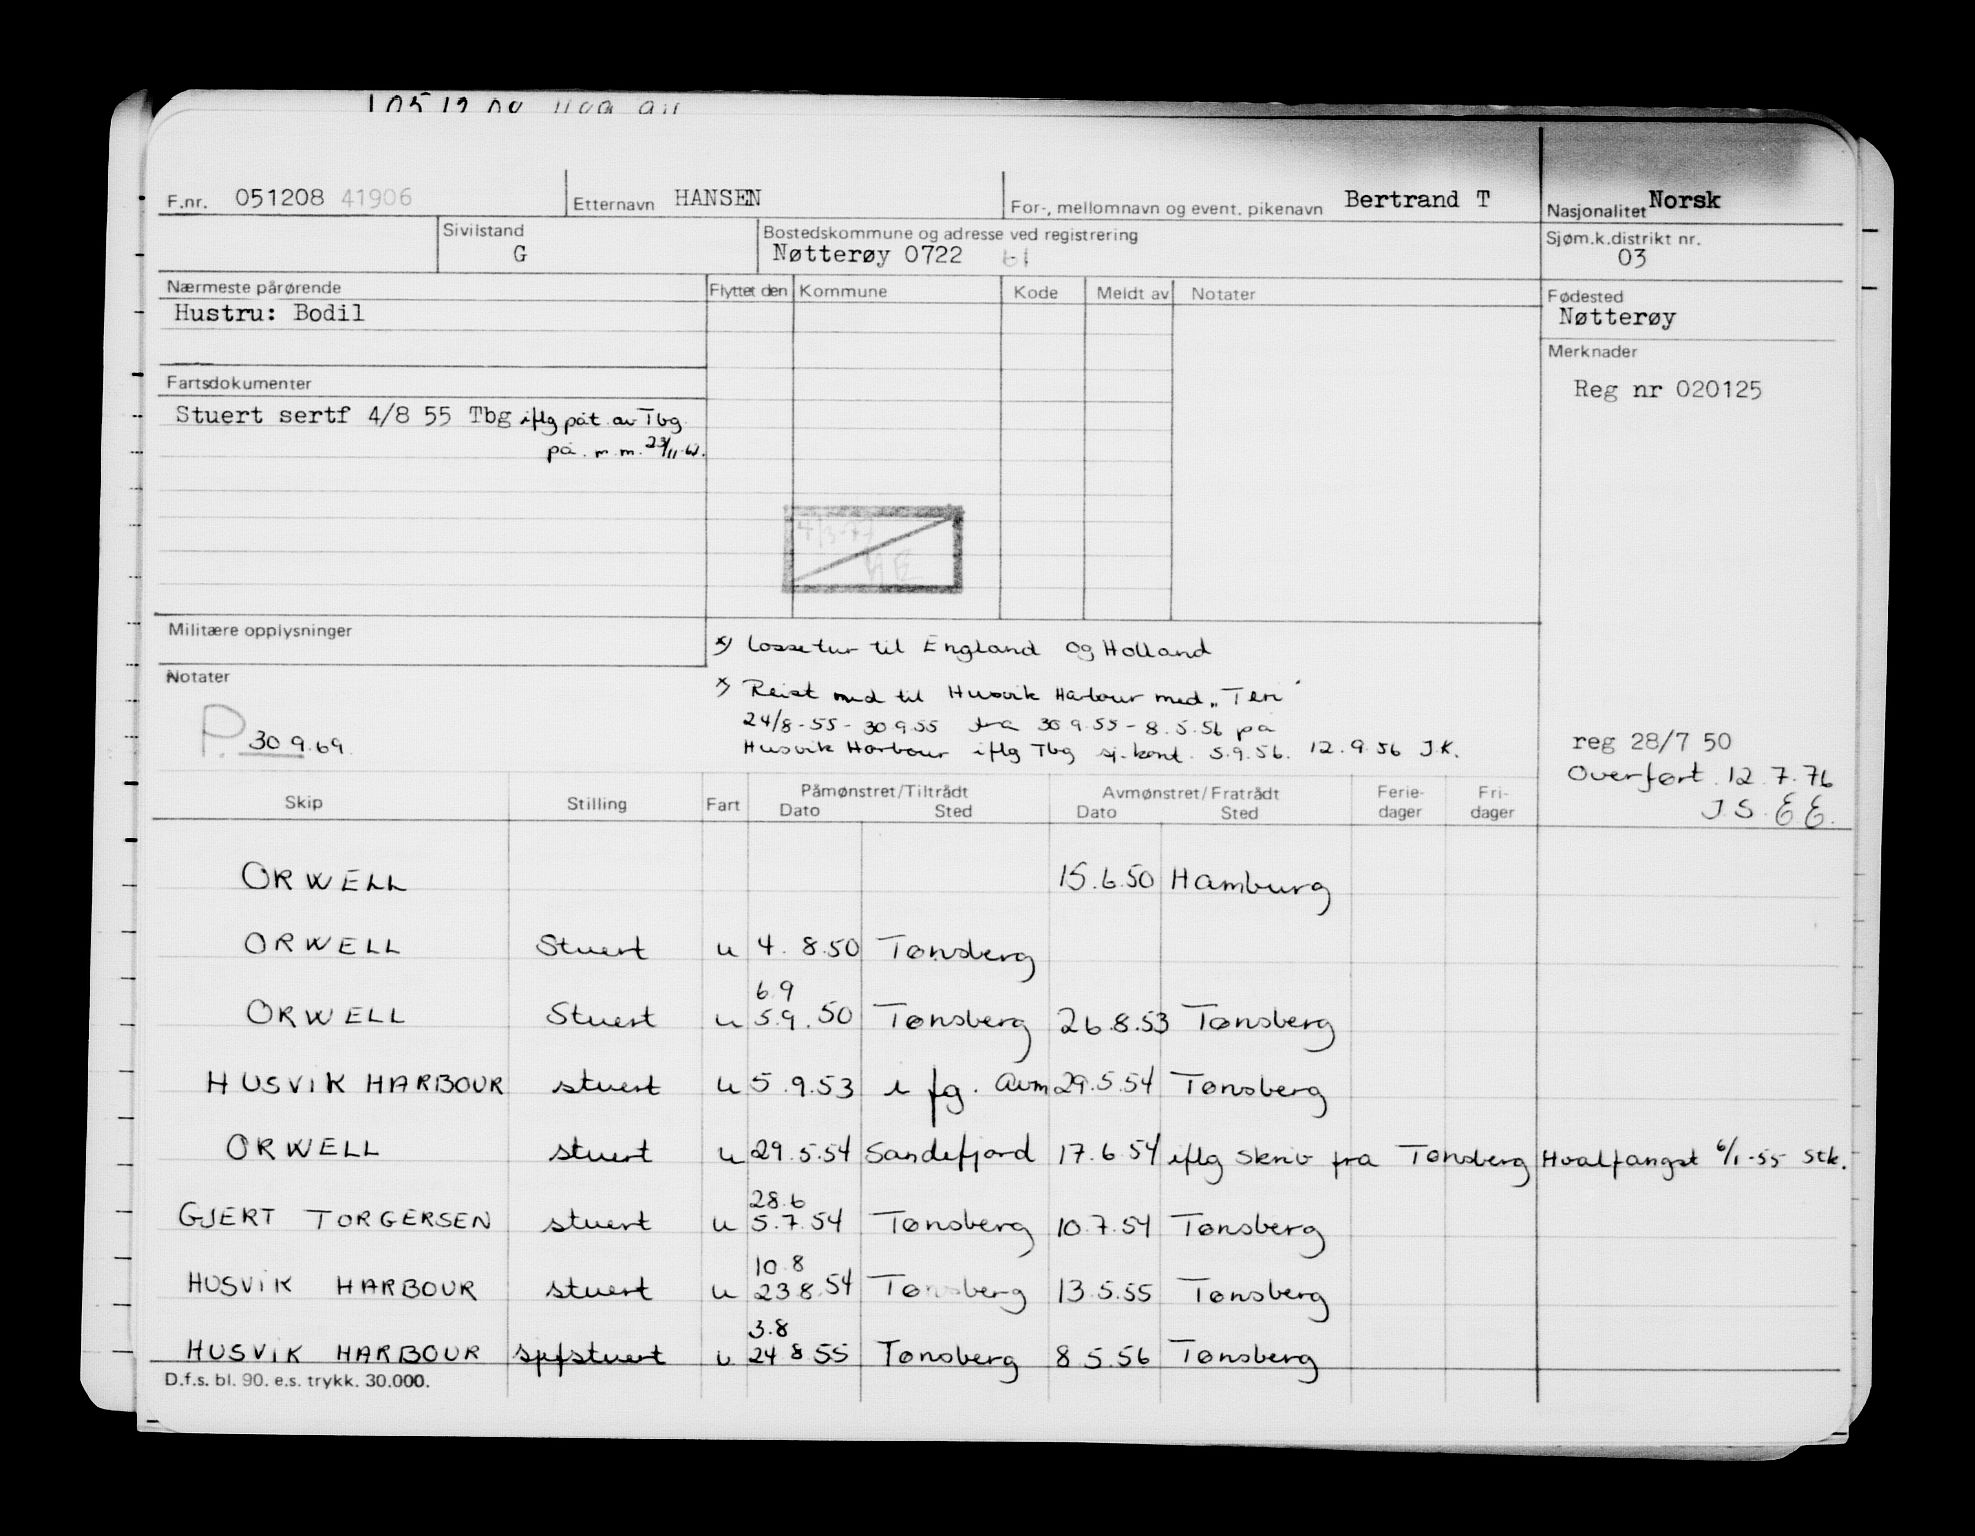 F.nr. 051208 41906 Etternavn HANSEN For-, mellomnavn og event. pikenavn Bertrand T Nasjonalitet Norsk
Sivilstand G Bostedskommune og adresse ved registrering Sjøm.k.distrikt nr.
Nøtterøy 0722 61 03
Nærmeste pårørende Flyttet den Kommune Kode Meldt av Notater Fødested
Hustru: Bodil Nøtterøy
Merknader
Fartsdokumenter Reg nr 020125
Stuert sertf 4/8 55 Tbg iflg påt av Tbg
på m.m. 23/11-61.
4/3-77
Militære opplysninger
*) Lossetur til England og Holland
Notater
*) Reist med til Husvik Harbour med „Teri"
24/8-55 - 30.9.55 fra 30.9.55 - 8.5.56 på
Husvik Harbour iflg Tbg sj.kont. 5.9.56. 12.9.56 J.K.
P. 30 9.69.
reg 28/7 50
Overført 12.7.76
J.S. E.E.
Skip Stilling Fart Påmønstret/Tiltrådt Avmønstret/Fratrådt Ferie-dager Fri-dager
Dato Sted Dato Sted
ORWELL 15.6.50 Hamburg
ORWELL Stuert u 4. 8.50 Tønsberg
6.9
ORWELL Stuert u 5.9.50 Tønsberg 26.8.53 Tønsberg
HUSVIK HARBOUR stuert u 5.9.53 i fg. Avm 29.5.54 Tønsberg
ORWELL stuert u 29.5.54 Sandefjord 17.6.54 iflg skriv fra Tønsberg Hvalfangst 6/1-55 Stk.
28.6
GJERT TORGERSEN stuert u 5.7.54 Tønsberg 10.7.54 Tønsberg
10.8
HUSVIK HARBOUR stuert u 23 8.54 Tønsberg 13.5.55 Tønsberg
3.8
HUSVIK HARBOUR spfstuert u 24 8 55 Tønsberg 8 5.56 Tønsberg
D.f.s. bl. 90. e.s. trykk. 30.000.